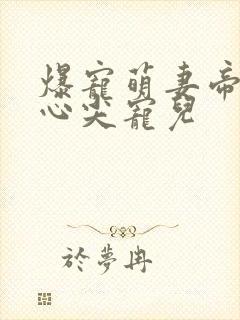 爆寵萌妻帝
心尖寵兒
於夢冉